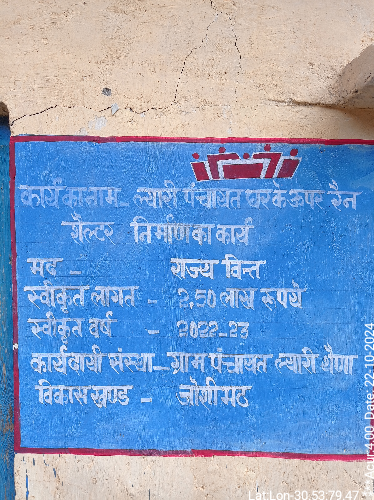 कार्य का नाम - ल्यारी पंचायत घर के ऊपर रैन
शैल्टर निर्माण का कार्य
मद - राज्य वित्त
स्वीकृत लागत - 2.50 लाख रूपये
स्वीकृत वर्ष - 2022-23
कार्यदायी संस्था - ग्राम पंचायत ल्यारी थैणा
विकास खण्ड - जोशीमठ
Acur:4.00 Date: 22-10-2024
Lat Lon-30.53:79.47